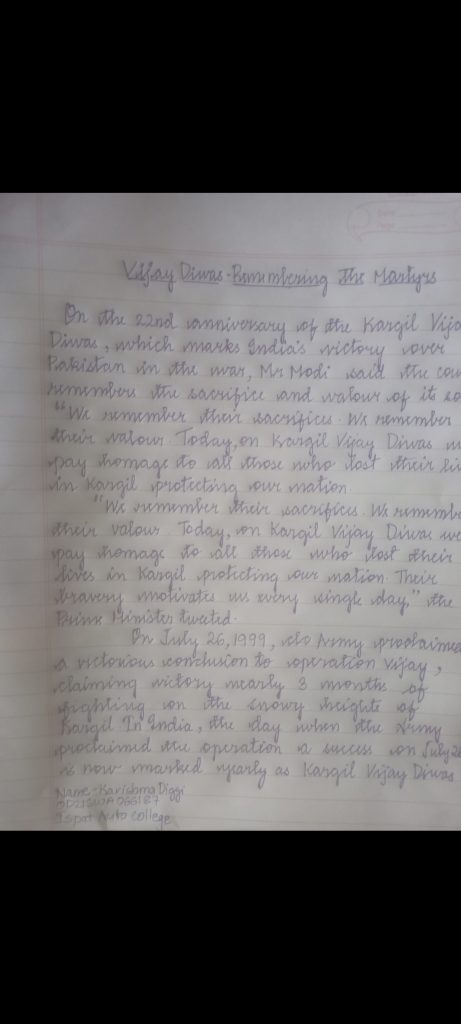 Vijay Diwas - Remembering The Martyrs
On the 22nd anniversary of the Kargil Vija
Diwas, which marks India's victory over
Pakistan in the war, Mr Modi said the cou
remembers the sacrifice and valour of its so
"We remember their sacrifices. We remember
their valour. Today, on Kargil Vijay Diwas w
pay homage to all those who lost their li
in Kargil protecting our nation.
"We remember their sacrifices. We rememb
their valour. Today, on Kargil Vijay Diwas we
pay homage to all those who lost their
lives in Kargil protecting our nation. Their
bravery motivates us every single day," the
Prime Minister tweeted.
On July 26, 1999, the Army proclaimed
a victorious conclusion to operation vijay,
claiming victory nearly 3 months of
fighting on the snowy heights of
Kargil. In India, the day when the Army
proclaimed the operation a success on July 26
is now marked yearly as Kargil Vijay Diwas
Name - Karishma Diggi
Ispat Auto college